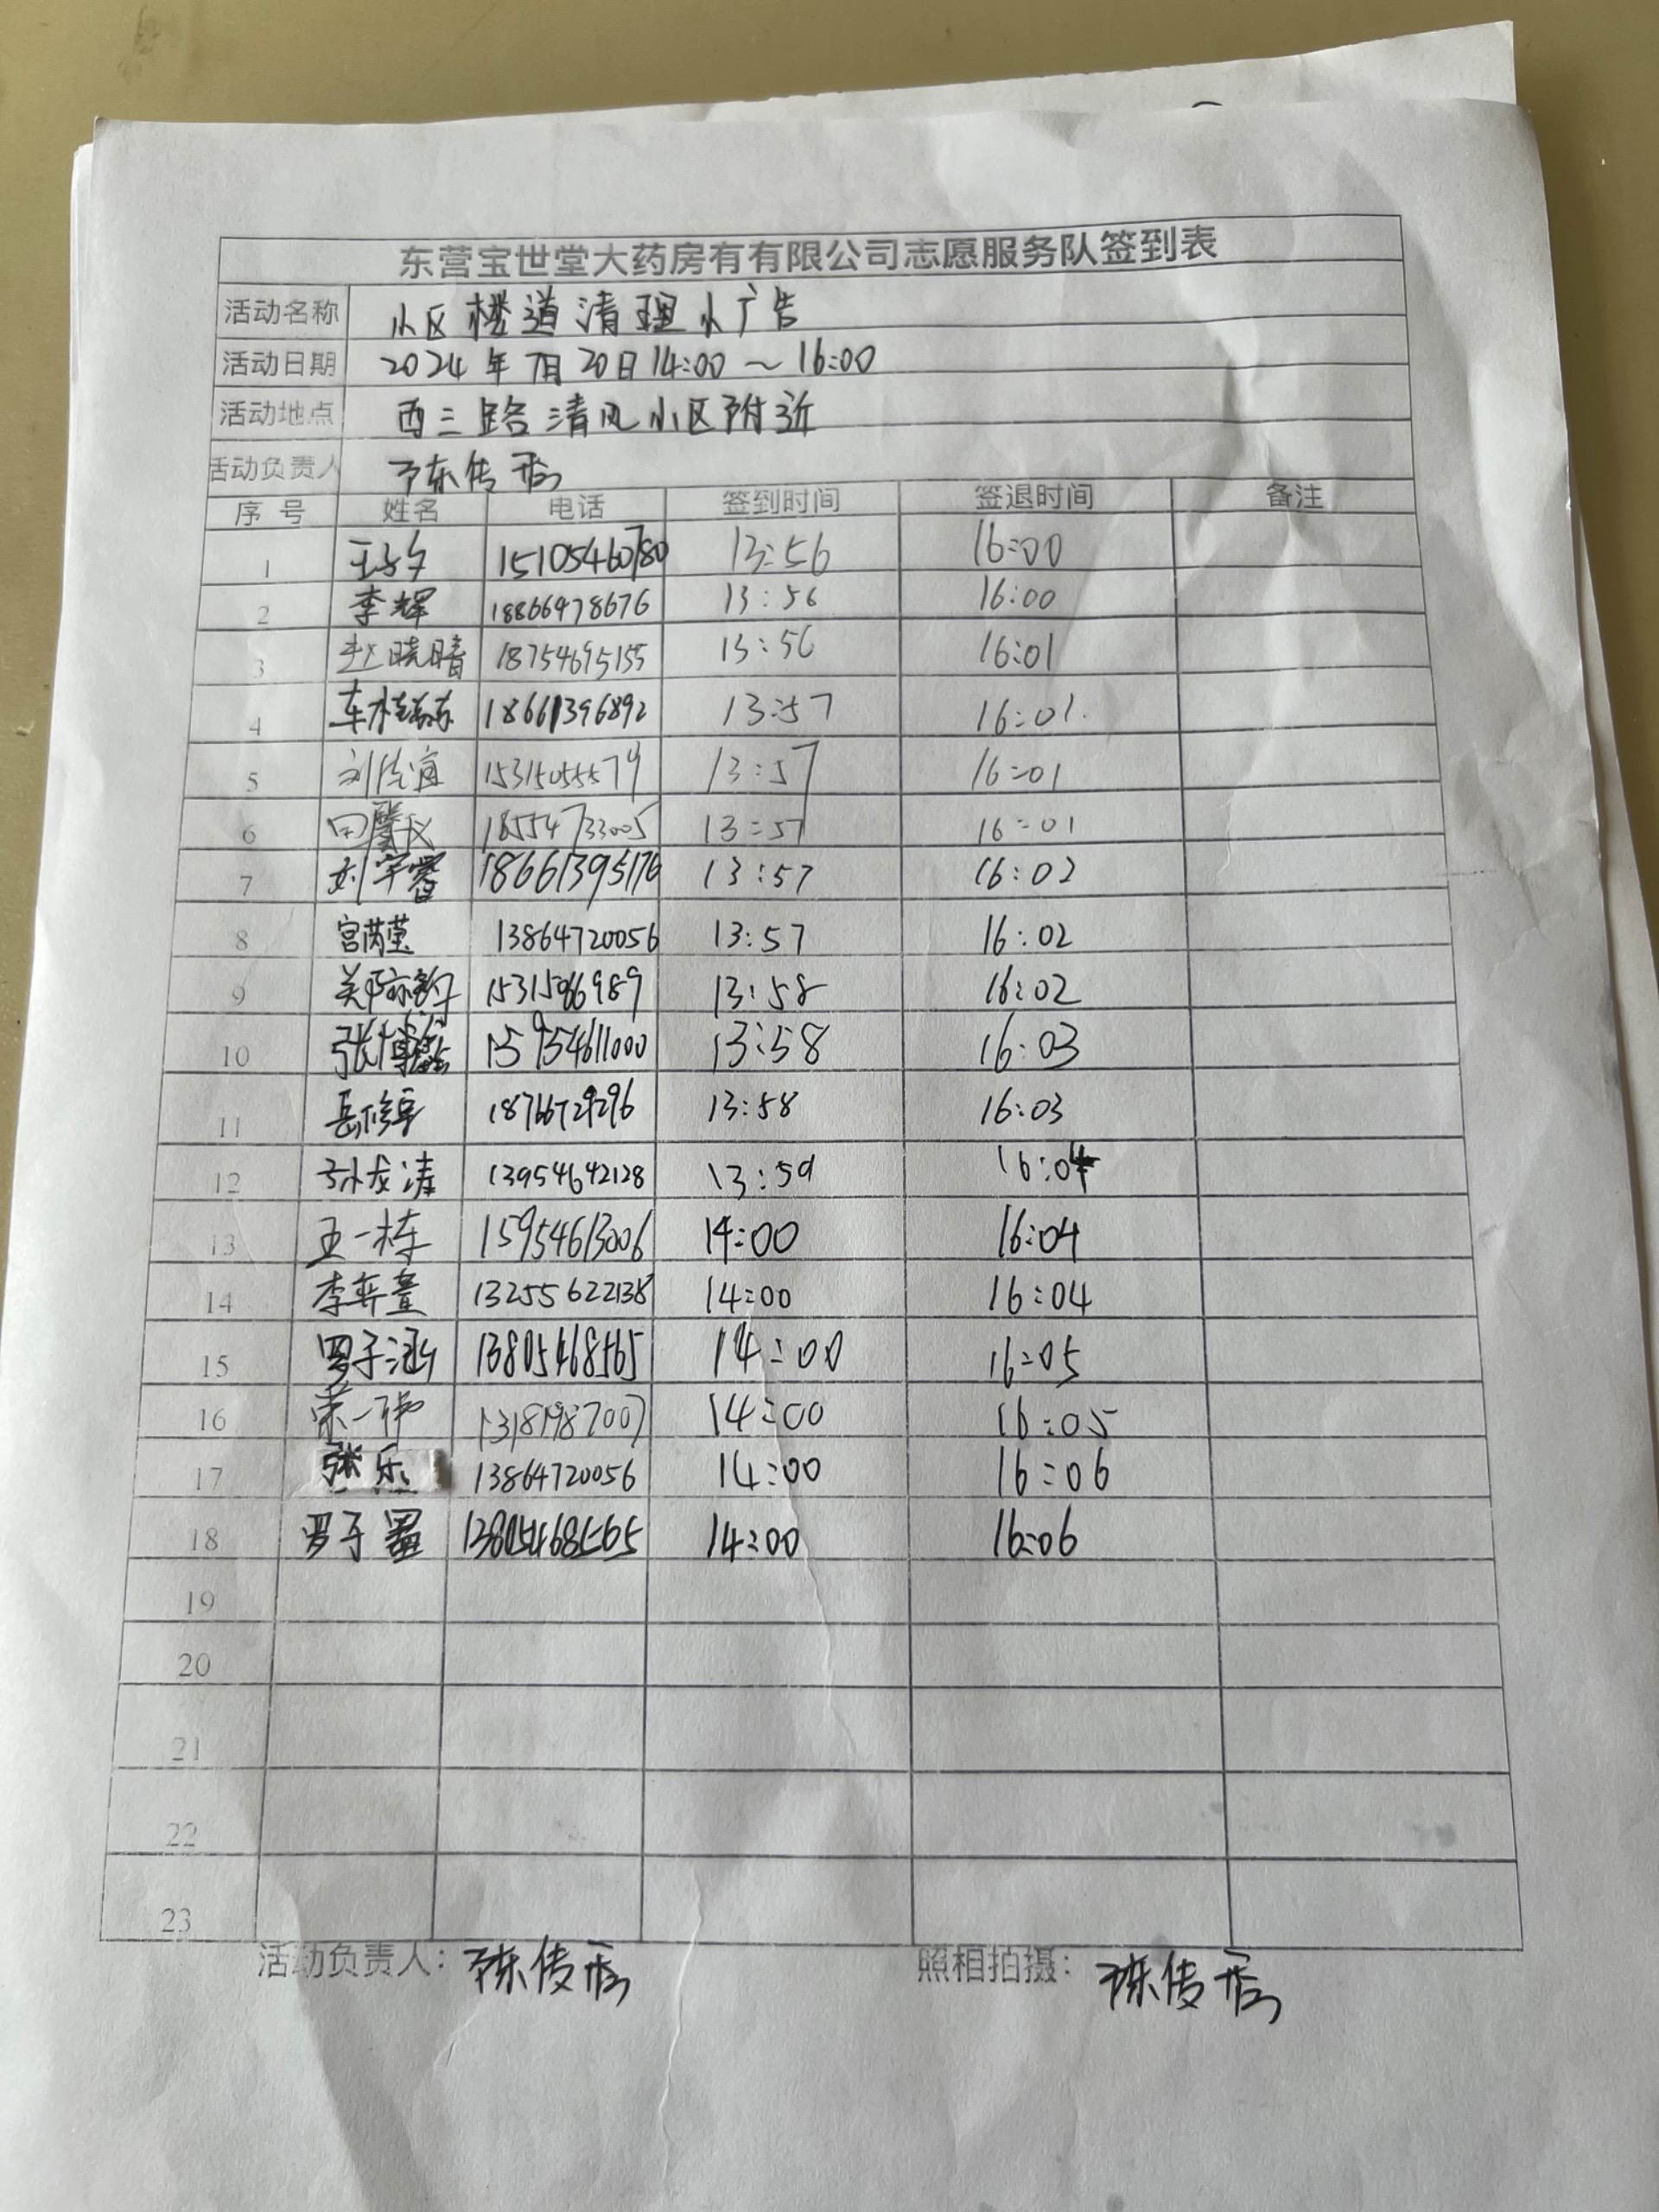 东营宝世堂大药房有有限公司志愿服务队签到表
活动名称 小区楼道清理小广告
活动日期 2024年7月20日14:00～16:00
活动地点 西三路清风小区附近
活动负责人 陈传
序号 姓名 电话 签到时间 签退时间 备注
1 王 15105460780 13:56 16:00
2 李辉 18866478676 13:56 16:00
3 赵晓晴 18754695155 13:56 16:01
4 车 18661396892 13:57 16:01
5 刘 15315055579 13:57 16:01
6 田馨仪 18554733005 13:57 16:01
7 刘宇睿 18661395176 13:57 16:02
8 宫 13864720056 13:57 16:02
9 13:58 16:02
10 张博 15954611000 13:58 16:03
11 岳修 13:58 16:03
12 孙龙涛 13954642128 13:59 16:04
13 王一栋 15954613006 14:00 16:04
14 李弈萱 13255622138 14:00 16:04
15 罗子涵 13805468565 14:00 16:05
16 荣一 13181987007 14:00 16:05
17 张乐 13864720056 14:00 16:06
18 罗子 13805468565 14:00 16:06
19
20
21
22
23
活动负责人：陈传 照相拍摄：陈传